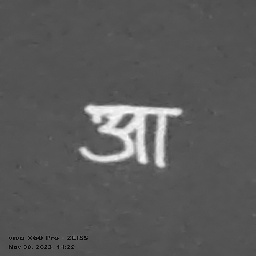 आ
vivo X60 Pro · ZEISS
Nov 30, 2023, 11:22